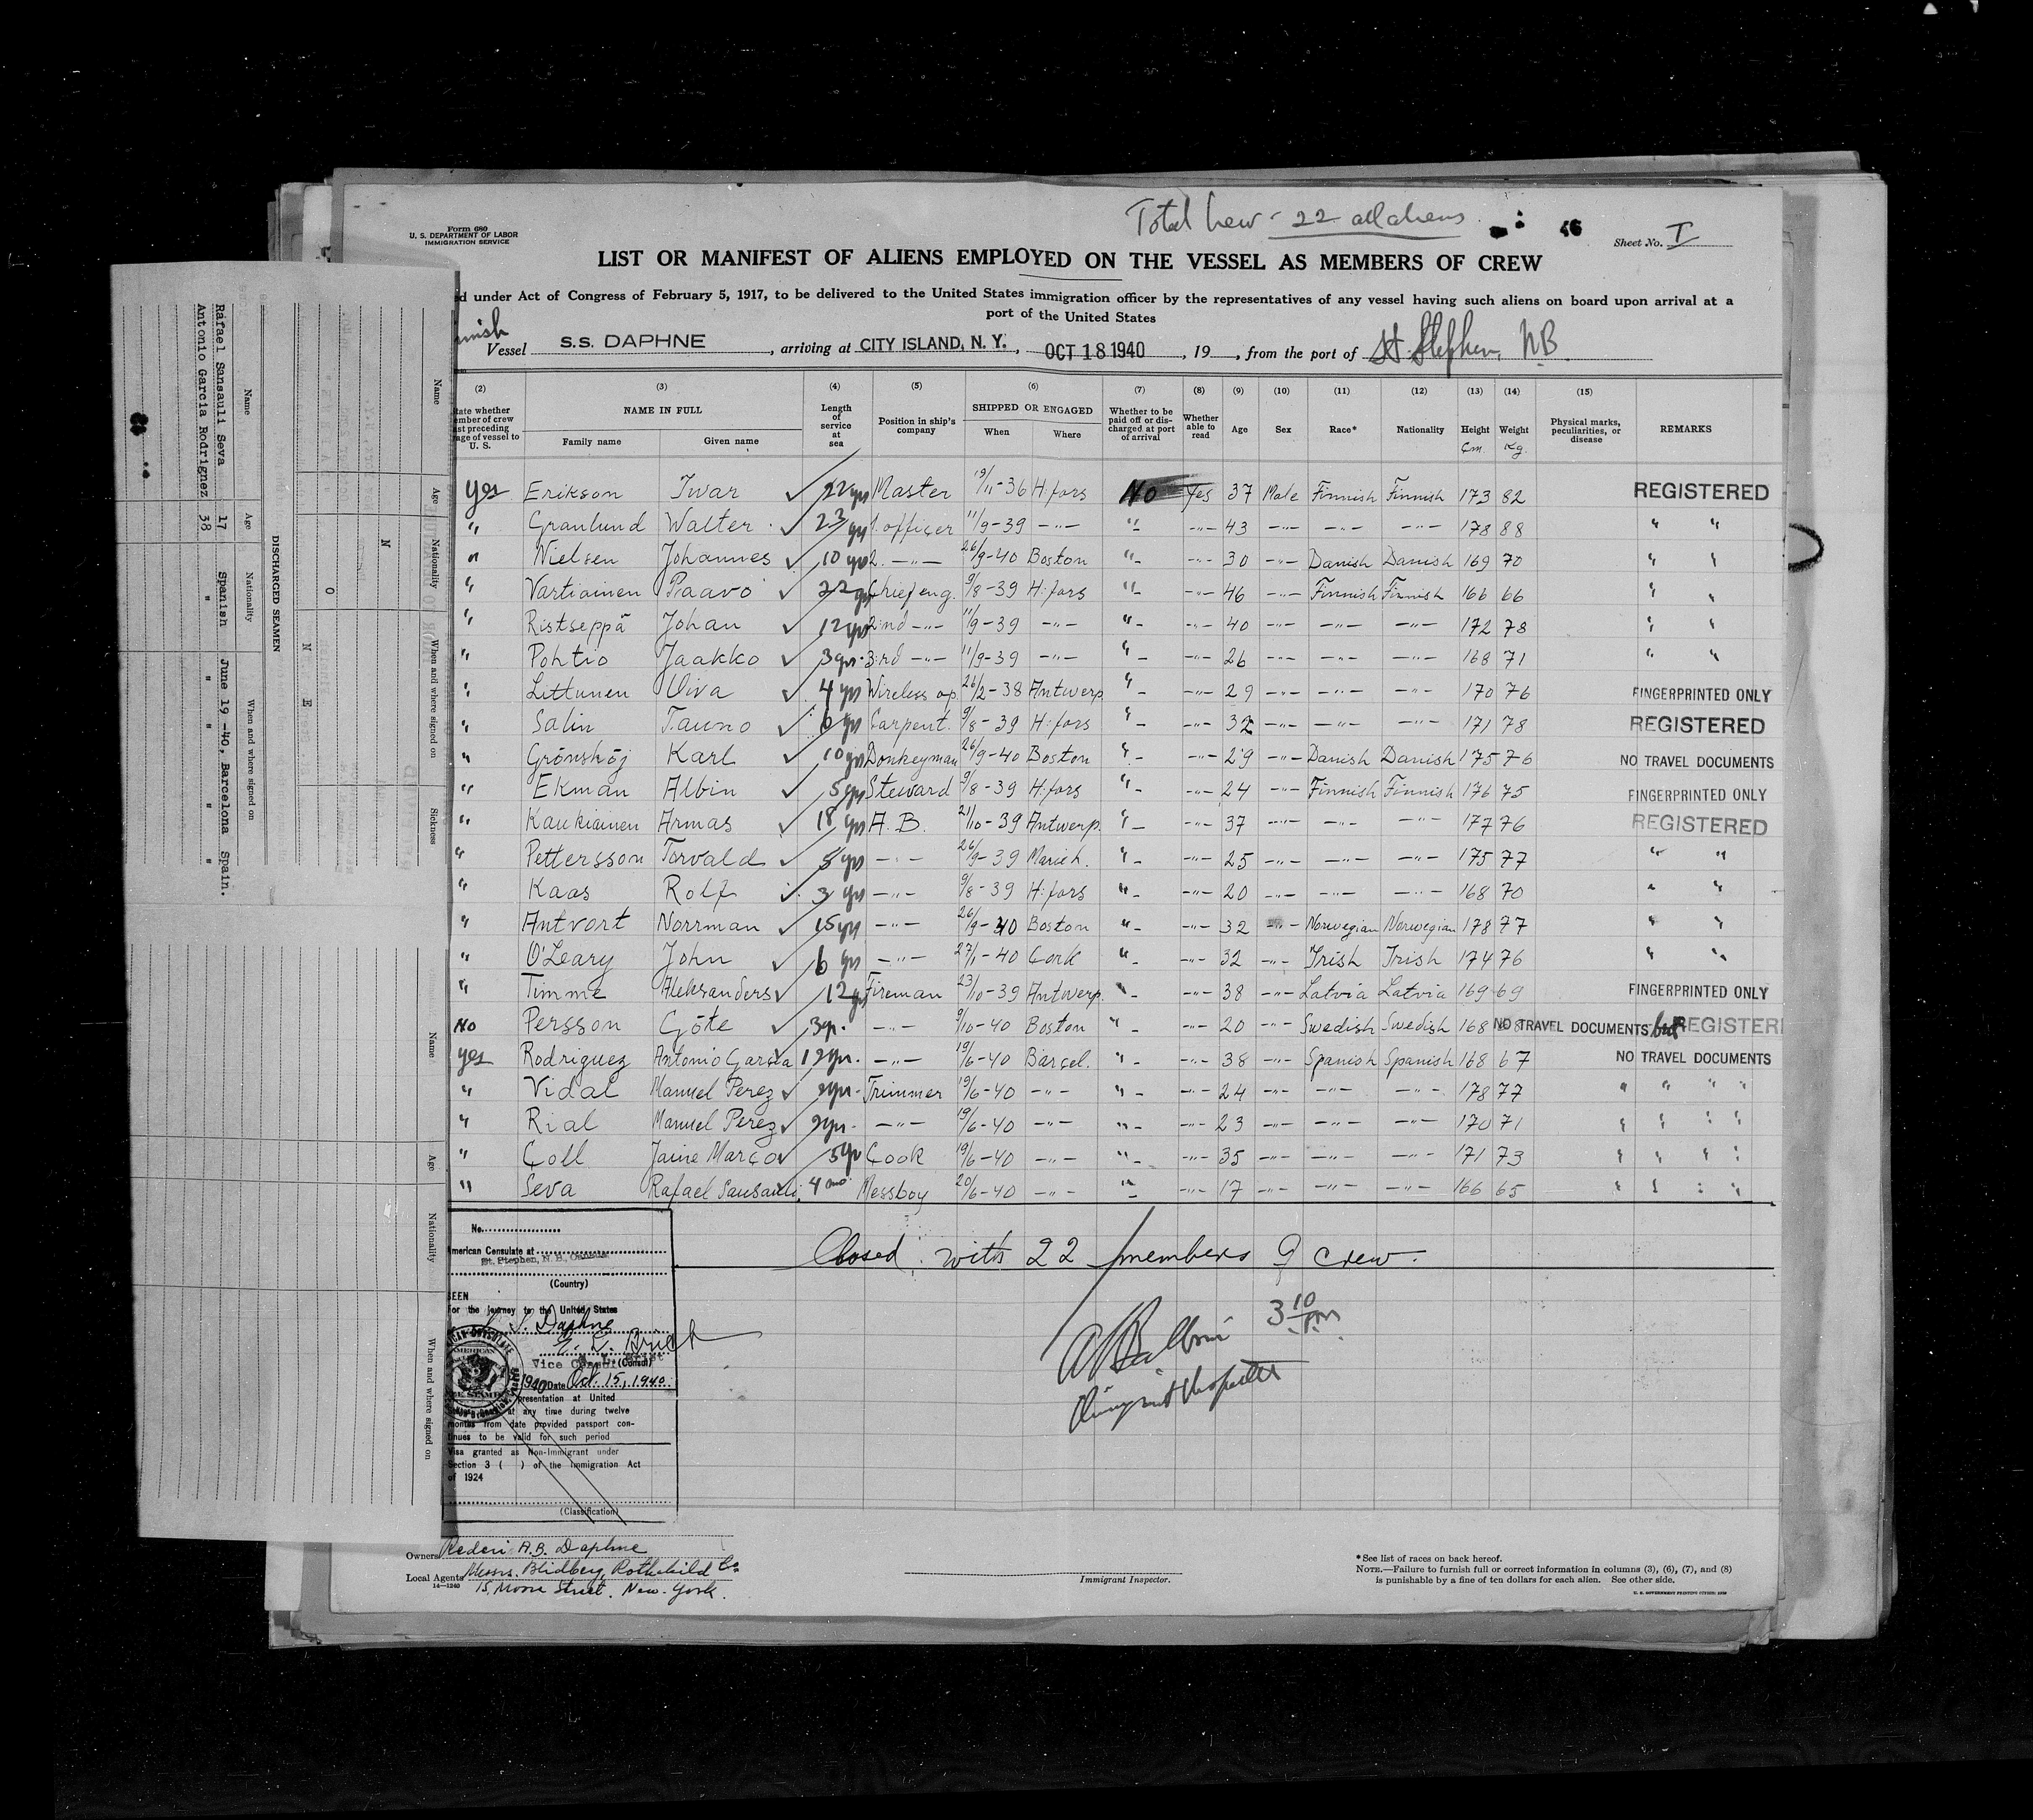 Total Crew - 22 all aliens
46
Form 680
U. S. DEPARTMENT OF LABOR
IMMIGRATION SERVICE
Sheet No. I
LIST OR MANIFEST OF ALIENS EMPLOYED ON THE VESSEL AS MEMBERS OF CREW
ed under Act of Congress of February 5, 1917, to be delivered to the United States immigration officer by the representatives of any vessel having such aliens on board upon arrival at a
port of the United States
nish
Vessel S.S. DAPHNE, arriving at CITY ISLAND, N. Y., OCT 18 1940, 19, from the port of St. Stephen, N.B.
(2) (3) (4) (5) (6) (7) (8) (9) (10) (11) (12) (13) (14) (15)
tate whether member of crew last preceding voyage of vessel to U. S. NAME IN FULL Family name Given name Length of service at sea Position in ship's company SHIPPED OR ENGAGED When Where Whether to be paid off or discharged at port of arrival Whether able to read Age Sex Race* Nationality Height Cm. Weight Kg. Physical marks, peculiarities, or disease REMARKS
Yes Erikson Iwar ✓ 22 yrs Master 19/11-36 H:fors No Yes 37 Male Finnish Finnish 173 82 REGISTERED
" Granlund Walter ✓ 23 yrs 1. officer 11/9-39 -"- "- -"- 43 -"- -"- -"- 178 88 " "
" Nielsen Johannes ✓ 10 yrs 2. -"- 26/9-40 Boston "- -"- 30 -"- Danish Danish 169 70 " "
" Vartiainen Paavo ✓ 22 yrs Chief eng. 9/8-39 H:fors "- -"- 46 -"- Finnish Finnish 166 66 " "
" Ristseppä Johan ✓ 12 yrs 2:nd -"- 11/9-39 -"- "- -"- 40 -"- -"- -"- 172 78 " "
" Pohtio Jaakko ✓ 3 yrs. 3:rd -"- 11/9-39 -"- "- -"- 26 -"- -"- -"- 168 71 " "
" Littunen Oiva ✓ 4 yrs Wireless op. 26/2-38 Antwerp "- -"- 29 -"- -"- -"- 170 76 FINGERPRINTED ONLY
" Salin Tauno ✓ 6 yrs Carpent. 9/8-39 H:fors "- -"- 32 -"- -"- -"- 171 78 REGISTERED
" Grönshöj Karl ✓ 10 yrs Donkeyman 26/9-40 Boston "- -"- 29 -"- Danish Danish 175 76 NO TRAVEL DOCUMENTS
" Ekman Albin ✓ 5 yrs Steward 9/8-39 H:fors "- -"- 24 -"- Finnish Finnish 176 75 FINGERPRINTED ONLY
" Kaukiainen Armas ✓ 18 yrs A. B. 21/10-39 Antwerp. "- -"- 37 -"- -"- -"- 177 76 REGISTERED
" Pettersson Torvald ✓ 5 yrs -"- 26/9-39 Marieh. "- -"- 25 -"- -"- -"- 175 77 " "
" Kaas Rolf ✓ 3 yrs -"- 9/8-39 H:fors "- -"- 20 -"- -"- -"- 168 70 " "
" Antvort Norrman ✓ 15 yrs -"- 26/9-40 Boston "- -"- 32 -"- Norwegian Norwegian 178 77 " "
" O'Leary John ✓ 6 yrs -"- 27/1-40 Cork "- -"- 32 -"- Irish Irish 174 76 " "
" Timme Aleksanders ✓ 12 yrs Fireman 23/10-39 Antwerp. "- -"- 38 -"- Latvia Latvia 169 69 FINGERPRINTED ONLY
No Persson Göte ✓ 3 yr. -"- 9/10-40 Boston "- -"- 20 -"- Swedish Swedish 168 68 NO TRAVEL DOCUMENTS but REGISTERE
yes Rodriguez Antonio Garcia 19 yr. -"- 19/6-40 Barcel. "- -"- 38 -"- Spanish Spanish 168 67 NO TRAVEL DOCUMENTS
" Vidal Manuel Perez ✓ 2 yr. Trimmer 19/6-40 -"- "- -"- 24 -"- -"- -"- 178 77 " " " "
" Rial Manuel Perez ✓ 2 yr. -"- 19/6-40 -"- "- -"- 23 -"- -"- -"- 170 71 " " " "
" Coll Jaime Marco ✓ 5 yr Cook 19/6-40 -"- "- -"- 35 -"- -"- -"- 171 73 " " " "
" Seva Rafael Sansauli 4 mo Messboy 20/6-40 -"- "- -"- 17 -"- -"- -"- 166 65 " " " "
Closed with 22 members of crew.
3 10 PM
No.
American Consulate at
St. Stephen, N. B., Canada
(Country)
SEEN
for the journey to the United States
S. S. Daphne
Vice Consul (Consul)
1940 Date Oct. 15, 1940.
presentation at United
at any time during twelve
months from date provided passport con-
tinues to be valid for such period
Visa granted as Non-Immigrant under
Section 3 ( ) of the Immigration Act
of 1924
(Classification)
Owners Rederi A.B. Daphne
Local Agents Messrs. Blidberg Rothchild Co
14-1240
15, Moore Street. New-York.
Immigrant Inspector.
*See list of races on back hereof.
NOTE.—Failure to furnish full or correct information in columns (3), (6), (7), and (8)
is punishable by a fine of ten dollars for each alien. See other side.
DISCHARGED SEAMEN
Name Age Nationality When and where signed on
Rafael Sansauli Seva 17 Spanish June 19 -40, Barcelona Spain.
Antonio Garcia Rodrignez 38 " " " " "
Name Age Nationality When and where signed on Sickness
N O N E
Name Age Nationality When and where signed on